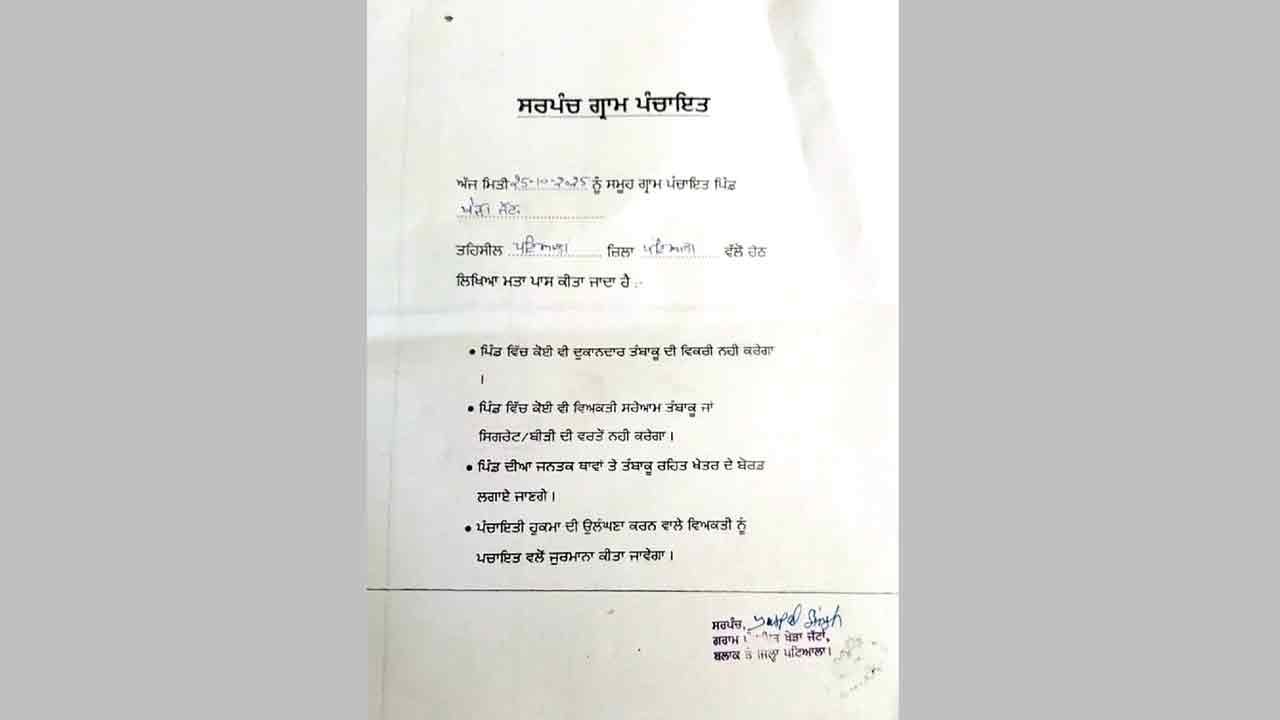 ਸਰਪੰਚ ਗ੍ਰਾਮ ਪੰਚਾਇਤ
ਅੱਜ ਮਿਤੀ 25-10-2025 ਨੂੰ ਸਮੂਹ ਗ੍ਰਾਮ ਪੰਚਾਇਤ ਪਿੰਡ
ਖੇੜਾ ਜੱਟਾਂ
ਤਹਿਸੀਲ ਪਟਿਆਲਾ ਜ਼ਿਲਾ ਪਟਿਆਲਾ ਵੱਲੋਂ ਹੇਠ
ਲਿਖਿਆ ਮਤਾ ਪਾਸ ਕੀਤਾ ਜਾਂਦਾ ਹੈ :-
• ਪਿੰਡ ਵਿੱਚ ਕੋਈ ਵੀ ਦੁਕਾਨਦਾਰ ਤੰਬਾਕੂ ਦੀ ਵਿਕਰੀ ਨਹੀ ਕਰੇਗਾ
।
• ਪਿੰਡ ਵਿੱਚ ਕੋਈ ਵੀ ਵਿਅਕਤੀ ਸਰੇਆਮ ਤੰਬਾਕੂ ਜਾਂ
ਸਿਗਰੇਟ/ਬੀੜੀ ਦੀ ਵਰਤੋਂ ਨਹੀ ਕਰੇਗਾ ।
• ਪਿੰਡ ਦੀਆ ਜਨਤਕ ਥਾਵਾਂ ਤੇ ਤੰਬਾਕੂ ਰਹਿਤ ਖੇਤਰ ਦੇ ਬੋਰਡ
ਲਗਾਏ ਜਾਣਗੇ ।
• ਪੰਚਾਇਤੀ ਹੁਕਮਾ ਦੀ ਉਲੰਘਣਾ ਕਰਨ ਵਾਲੇ ਵਿਅਕਤੀ ਨੂੰ
ਪਚਾਇਤ ਵਲੋਂ ਜੁਰਮਾਨਾ ਕੀਤਾ ਜਾਵੇਗਾ ।
ਸਰਪੰਚ, Singh
ਗਰਾਮ ਖੇੜਾ ਜੱਟਾਂ,
ਬਲਾਕ ਜ਼ਿਲ੍ਹਾ ਪਟਿਆਲਾ।